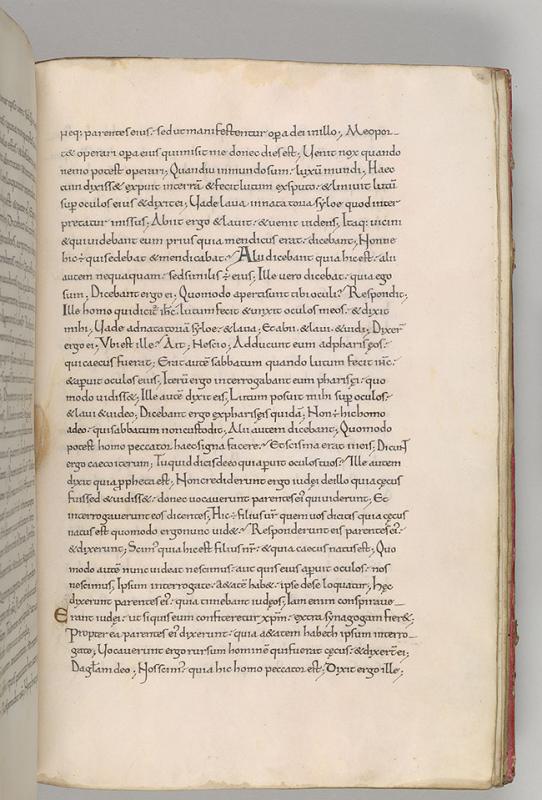 neq; parentes eius; sed ut manifestentur opa dei in illo; Me opor_
t& operari opa eius qui misit me donec dies est; Venit nox quando
nemo potest operari; Quandiu in mundo sum; lux sū mundi; Haec
cum dixiss& expuit in terrā & fecit lutum ex sputo; & liniuit lutū
sup oculos eius & dixit ei; Vade laua in natatoria syloe quod inter
pretatur missus; Abiit ergo & lauit; & uenit uidens; Itaq; uicini
& qui uidebant eum prius quia mendicus erat; dicebant; Nonne
hic ÷ qui sedebat & mendicabat; Alii dicebant quia hic est; alii
autem nequaquam; sed similis ÷ eius; Ille uero dicebat; quia ego
sum; Dicebant ergo ei; Quomodo aperti sunt tibi oculi; Respondit;
Ille homo qui dicit' ihc; lutum fecit & unxit oculos meos; & dixit
mihi; Vade ad natatoriā syloe; & laua; Et abii, & laui, & uidi; Dixer'
ergo ei; Vbi est ille; Ait; Nescio; Adducunt eum ad phariseos;
qui caecus fuerat; Erat autē sabbatum quando lutum fecit ihc;
& aperuit oculos eius; Iterū ergo interrogabant eum pharisei; quo
modo uidiss&; Ille autē dixit eis; Lutum posuit mihi sup oculos;
& laui & uideo; Dicebant ergo ex phariseis quidā; Non ÷ hic homo
a deo; qui sabbatum non custodit; Alii autem dicebant; Quomodo
potest homo peccator haec signa facere; Et scisma erat in eis; Dicunt
ergo caeco iterum; Tu quid dicis de eo qui aperuit oculos tuos; Ille autem
dixit quia ppheta est; Non crediderunt ergo iudei de illo quia cecus
fuiss& & uidiss&; donec uocauerunt parentes ei' qui uiderunt; Et
interrogauerunt eos dicentes; Hic ÷ filius ur' quem uos dicitis quia cecus
natus est quomodo ergo nunc uid&; Responderunt eis parentes ei';
& dixerunt; Scim' quia hic est filius nr'; & quia caecus natus est; Quo
modo autē nunc uideat nescimus; aut quis eius aperuit oculos; nos
nescimus; Ipsum interrogate; aetatē hab&; ipse de se loquatur; Hec
dixerunt parentes ei'; quia timebant iudeos; Iam enim conspiraue_
Erant iudei; ut si quis eum confiteretur xpm; extra synagogam fier&;
Propterea parentes ei' dixerunt; quia aetatem habet; ipsum interro_
gate; Vocauerunt ergo rursum hominē qui fuerat cecus; & dixerūt ei;
Da głam deo; Nos scim' quia hic homo peccator est; Dixit ergo ille;